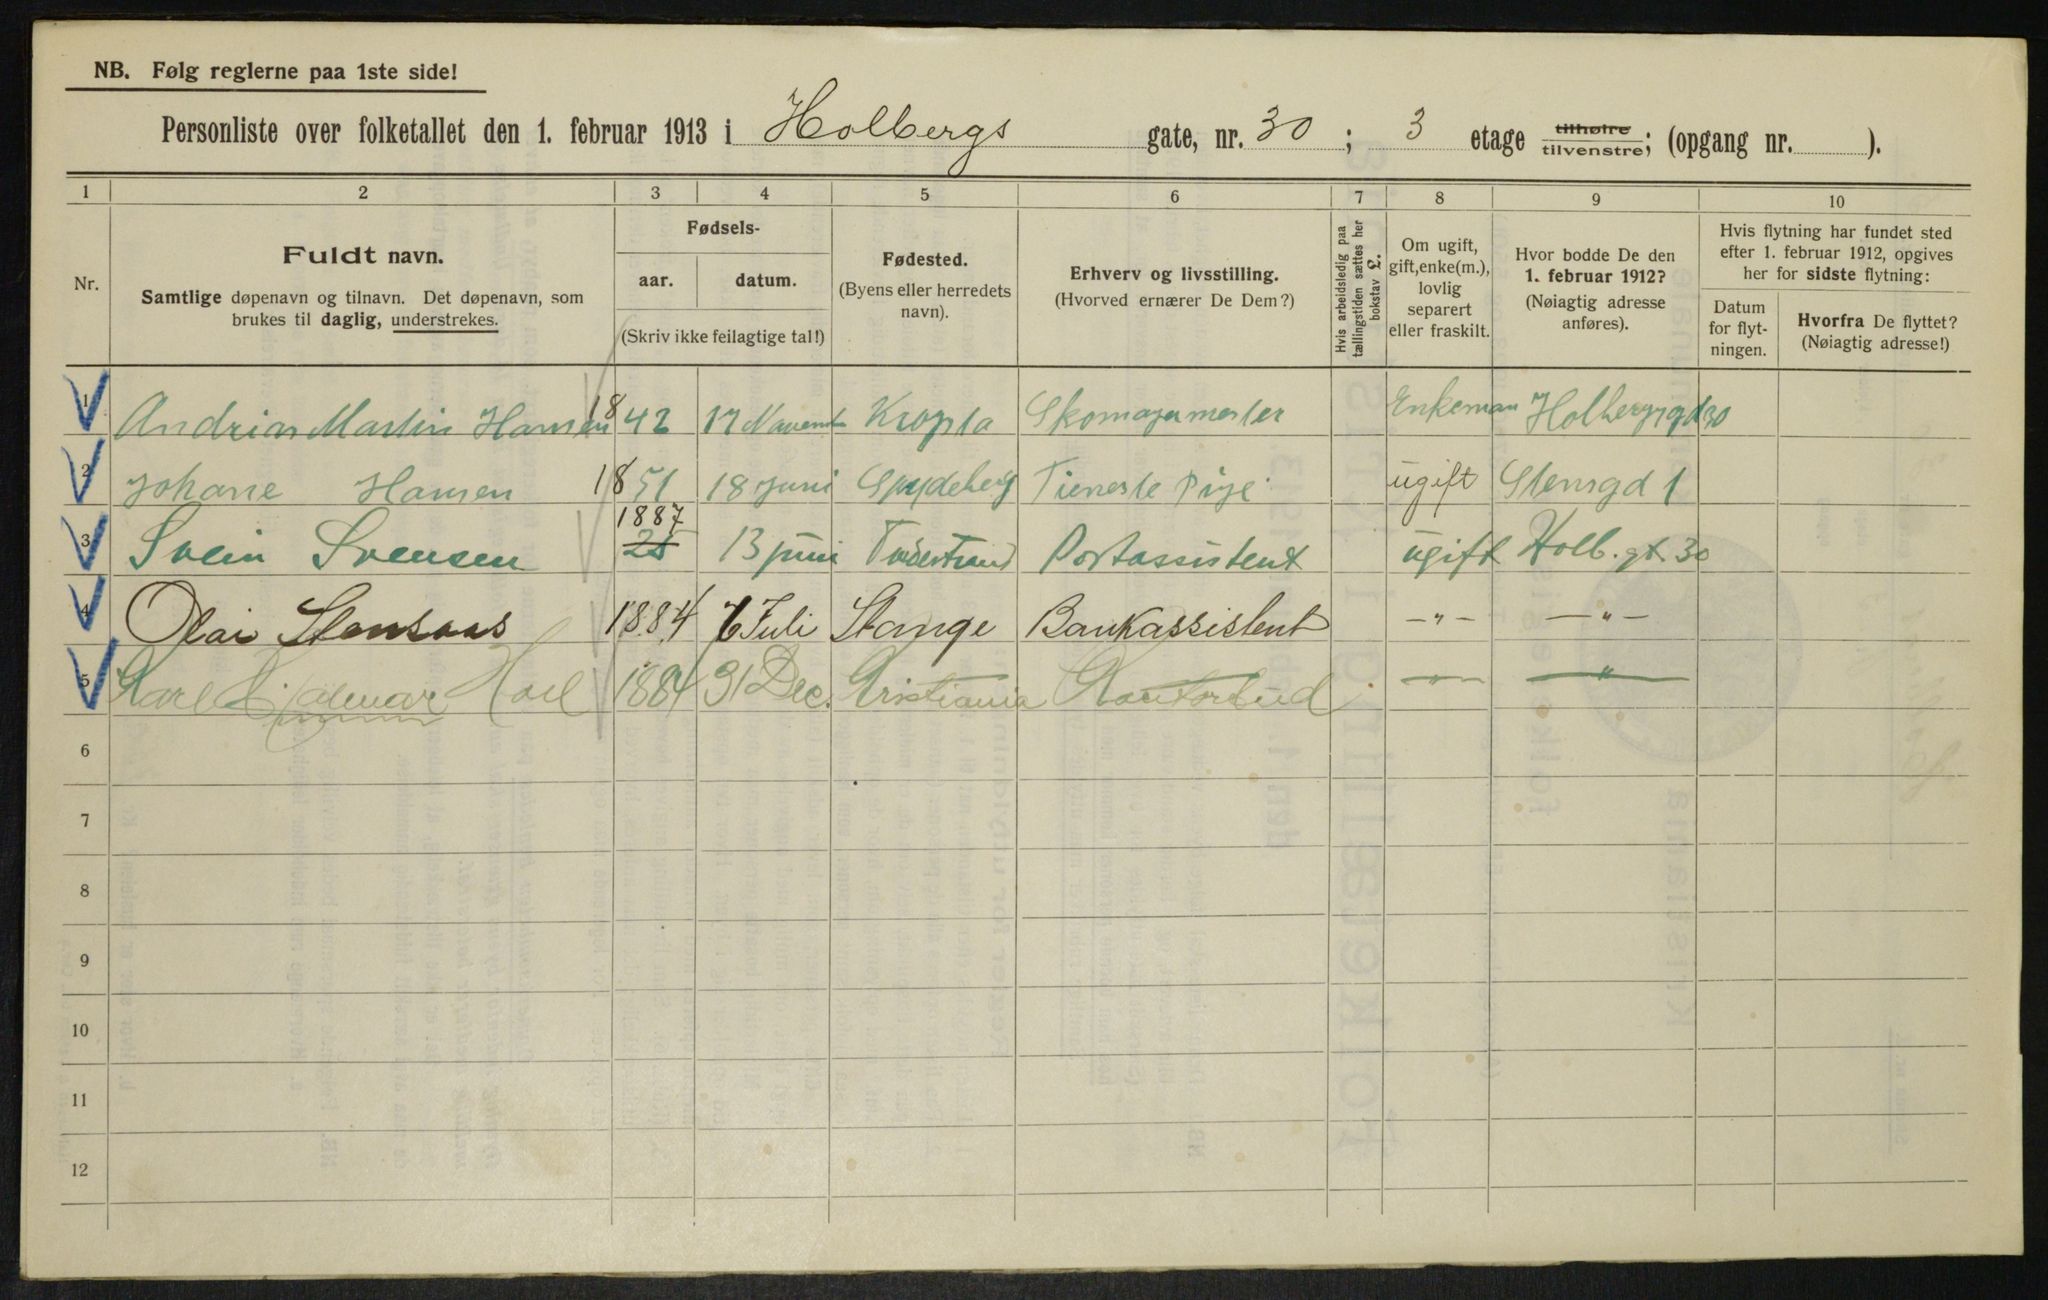 NB. Følg reglerne paa 1ste side!
Personliste over folketallet den 1. februar 1913 i Holbergs gate, nr. 30; 3 etage tilhøire tilvenstre; (opgang nr. ).
1 2 3 4 5 6 7 8 9 10
Nr.
Fuldt navn.
Samtlige døpenavn og tilnavn. Det døpenavn, som
brukes til daglig, understrekes.
Fødsels-
aar. datum.
(Skriv ikke feilagtige tal!)
Fødested.
(Byens eller herredets
navn).
Erhverv og livsstilling.
(Hvorved ernærer De Dem?)
Hvis arbeidsledig paa
tællingstiden sættes her
bokstav L.
Om ugift,
gift, enke(m.),
lovlig
separert
eller fraskilt.
Hvor bodde De den
1. februar 1912?
(Nøiagtig adresse
anføres).
Hvis flytning har fundet sted
efter 1. februar 1912, opgives
her for sidste flytning:
Datum
for flyt-
ningen.
Hvorfra De flyttet?
(Nøiagtig adresse!)
1 Andrias Martin Hansen 1842 17 Novemb Skomagermester Enkeman Holbergsgd 30
2 Johane Hansen 1851 18 Juni Spydeberg Tieneste Pige ugift Stensgd 1
1887
3 Svein Svensen 25 13 juni Postassistent ugift Holb. gt. 30
4 Olai Stensaas 1884 7 Juli Stange Bankassistent —„— —„—
5 Karl Hjalmar Hoel 1884 31 Dec. Kristiania Kontorbud —„— —„—
6
7
8
9
10
11
12